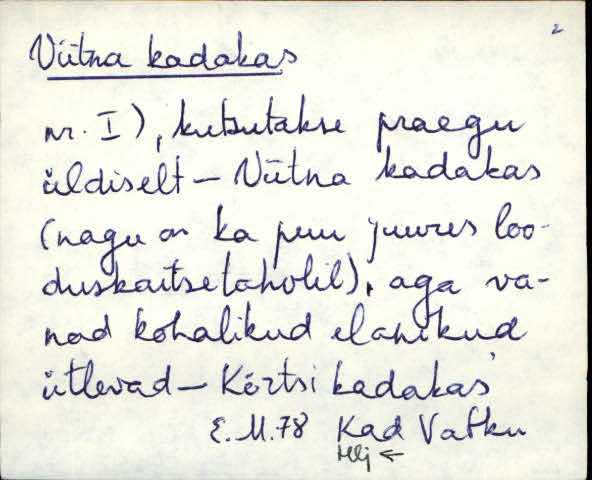 2
Viitna kadakas
nr. I), kutsutakse praegu
üldiselt – Viitna kadakas
(nagu on ka puu juures loo-
duskaitsetahvlil), aga va-
nad kohalikud elanikud
ütlevad – Kõrtsi kadakas
E. M. 78 Kad Vatku
Hlj ←